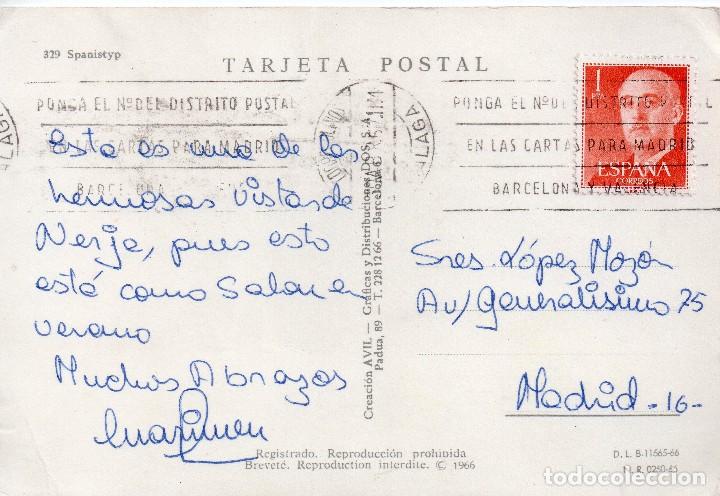 329 Spanistyp
TARJETA POSTAL
PONGA EL Nº DEL DISTRITO POSTAL
EN LAS CARTAS PARA MADRID
BARCELONA
MALAGA
PONGA EL Nº DEL DISTRITO POSTAL
EN LAS CARTAS PARA MADRID
BARCELONA Y VALENCIA
1
PTA
ESPAÑA
CORREOS
Esta es una de las
hermosas vistas de
Nerja, pues esto
está como Salou en
verano
Muchos Abrazos
Creación AVIL — Gráficas y Distribuciones
Padua, 89 — T. 228 12 66 — Barcelona
Sres. López Mozón
Av/ Generalisimo 75
Madrid -16-
Registrado. Reproducción prohibida
Breveté. Reproduction interdite. © 1966
D. L. B-11665-66
N. R. 0260-65
todocoleccion